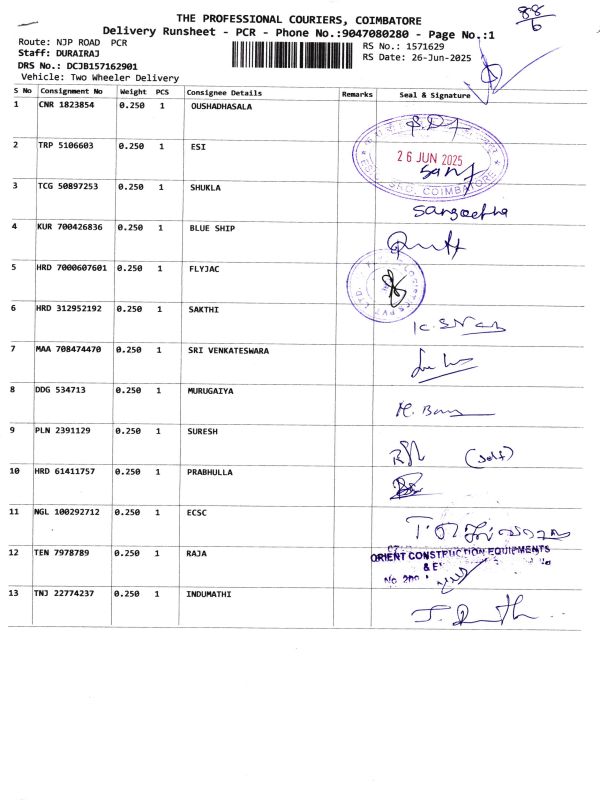 88
6
THE PROFESSIONAL COURIERS, COIMBATORE
Delivery Runsheet - PCR - Phone No.:9047080280 - Page No.:1
Route: NJP ROAD PCR
RS No.: 1571629
Staff: DURAIRAJ
RS Date: 26-Jun-2025
DRS No.: DCJB157162901
Vehicle: Two Wheeler Delivery
S No Consignment No Weight PCS Consignee Details Remarks Seal & Signature
1 CNR 1823854 0.250 1 OUSHADHASALA
2 TRP 5106603 0.250 1 ESI
26 JUN 2025
COIMBATORE
3 TCG 50897253 0.250 1 SHUKLA
Sangeetha
4 KUR 700426836 0.250 1 BLUE SHIP
5 HRD 7000607601 0.250 1 FLYJAC
6 HRD 312952192 0.250 1 SAKTHI
7 MAA 708474470 0.250 1 SRI VENKATESWARA
8 DDG 534713 0.250 1 MURUGAIYA
9 PLN 2391129 0.250 1 SURESH
(self)
10 HRD 61411757 0.250 1 PRABHULLA
11 NGL 100292712 0.250 1 ECSC
12 TEN 7978789 0.250 1 RAJA
ORIENT CONSTRUCTION EQUIPMENTS
13 TNJ 22774237 0.250 1 INDUMATHI